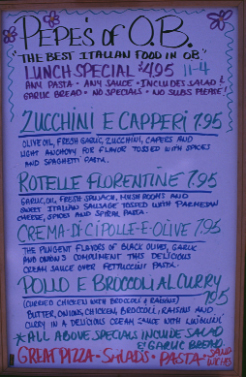 PEPE'S OF O.B.
"THE BEST ITALIAN FOOD IN OB"
LUNCH SPECIAL $4.95 11-4
ANY PASTA · ANY SAUCE · INCLUDES SALAD &
GARLIC BREAD · NO SPECIALS · NO SUBS PLEASE!
ZUCCHINI E CAPPERI 7.95
OLIVE OIL, FRESH GARLIC, ZUCCHINI, CAPERS AND
LIGHT ANCHOVY FOR FLAVOR TOSSED WITH SPICES
AND SPAGHETTI PASTA.
ROTELLE FLORENTINE 7.95
GARLIC, OIL, FRESH SPINACH, MUSHROOMS AND
SWEET ITALIAN SAUSAGE TOSSED WITH PARMESAN
CHEESE, SPICES AND SPIRAL PASTA.
CREMA DI CIPOLLE E OLIVE 7.95
THE PUNGENT FLAVORS OF BLACK OLIVES, GARLIC
AND ONIONS COMPLIMENT THIS DELICIOUS
CREAM SAUCE OVER FETTUCCINI PASTA.
POLLO E BROCCOLI AL CURRY
7.95
(CURRIED CHICKEN WITH BROCCOLI & RAISINS)
BUTTER, ONIONS, CHICKEN, BROCCOLI, RAISINS AND
CURRY IN A DELICIOUS CREAM SAUCE WITH LINGUINI
*ALL ABOVE SPECIALS INCLUDE SALAD
& GARLIC BREAD
GREAT PIZZA · SALADS · PASTA ·